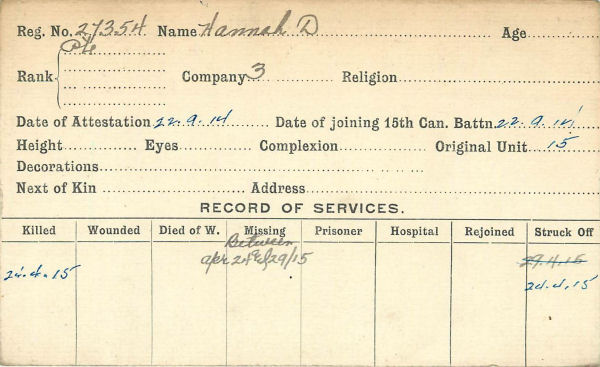 Reg. No. 27354 Name Hannah D Age
Pte
Rank Company 3 Religion
Date of Attestation 22.9.14 Date of joining 15th Can. Battn. 22.9.14
Height Eyes Complexion Original Unit 15
Decorations
Next of Kin Address
RECORD OF SERVICES.
Killed Wounded Died of W. Missing Prisoner Hospital Rejoined Struck Off
Between
apr 24 & 29/15 29.4.15
24.4.15 24.4.15